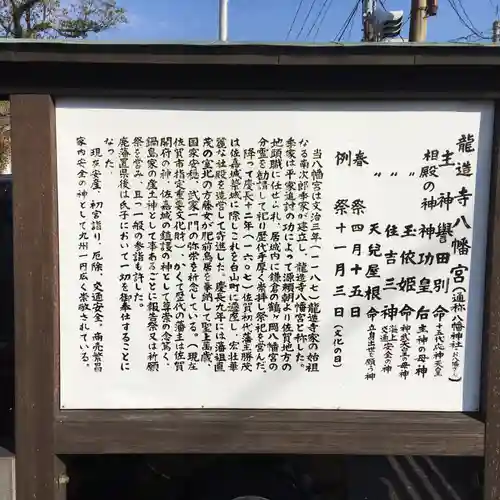 龍造寺八幡宮（通称八幡神社・お八幡さん）
主神 譽田別命 十五代応神天皇
相殿の神 神功皇后 主神の母神
〃 玉依姫命 神武天皇の母神
〃 住吉三神 海上交通安全の神
〃 天兒屋根命 立身出世を願う神
春祭 四月十五日
例祭 十一月三日（文化の日）
当八幡宮は文治三年（一一八七）龍造寺家の始祖
なる南次郎季家が建立し、龍造寺八幡宮と称した。
季家は平家追討の功によって源頼朝より佐賀地方の
地頭職に任せられ、居城内に鎌倉の鶴ヶ岡八幡宮の
分霊を勧請して祀り歴代手厚く崇拝し祭祀を営んだ。
降って慶長十二年（一六〇七）佐賀初代藩主勝茂
は佐嘉城築城に際しこれを白山町に遷座し、宏壮華
麗な社殿を造営して寄進した。慶長九年には藩祖直
茂の室北の方藤女が肥前鳥居を奉納して聖上萬歳、
国家安穏、武家一門の弥栄を祈念している。（現在
佐賀市指定重要文化財）、かくて歴代の藩主は佐賀
開府の神、佐嘉城の鎮護の神として尊崇の念篤く、
鍋島家の産土神として事あるごとに報賽祭又は祈願
祭を営み、且つ一般の参詣も許した。
廃藩置県後は氏子において一切を御奉仕することに
なった。
現在安産、初宮詣り、厄除、交通安全、商売繁昌
家内安全の神として九州一円広く崇敬されている。